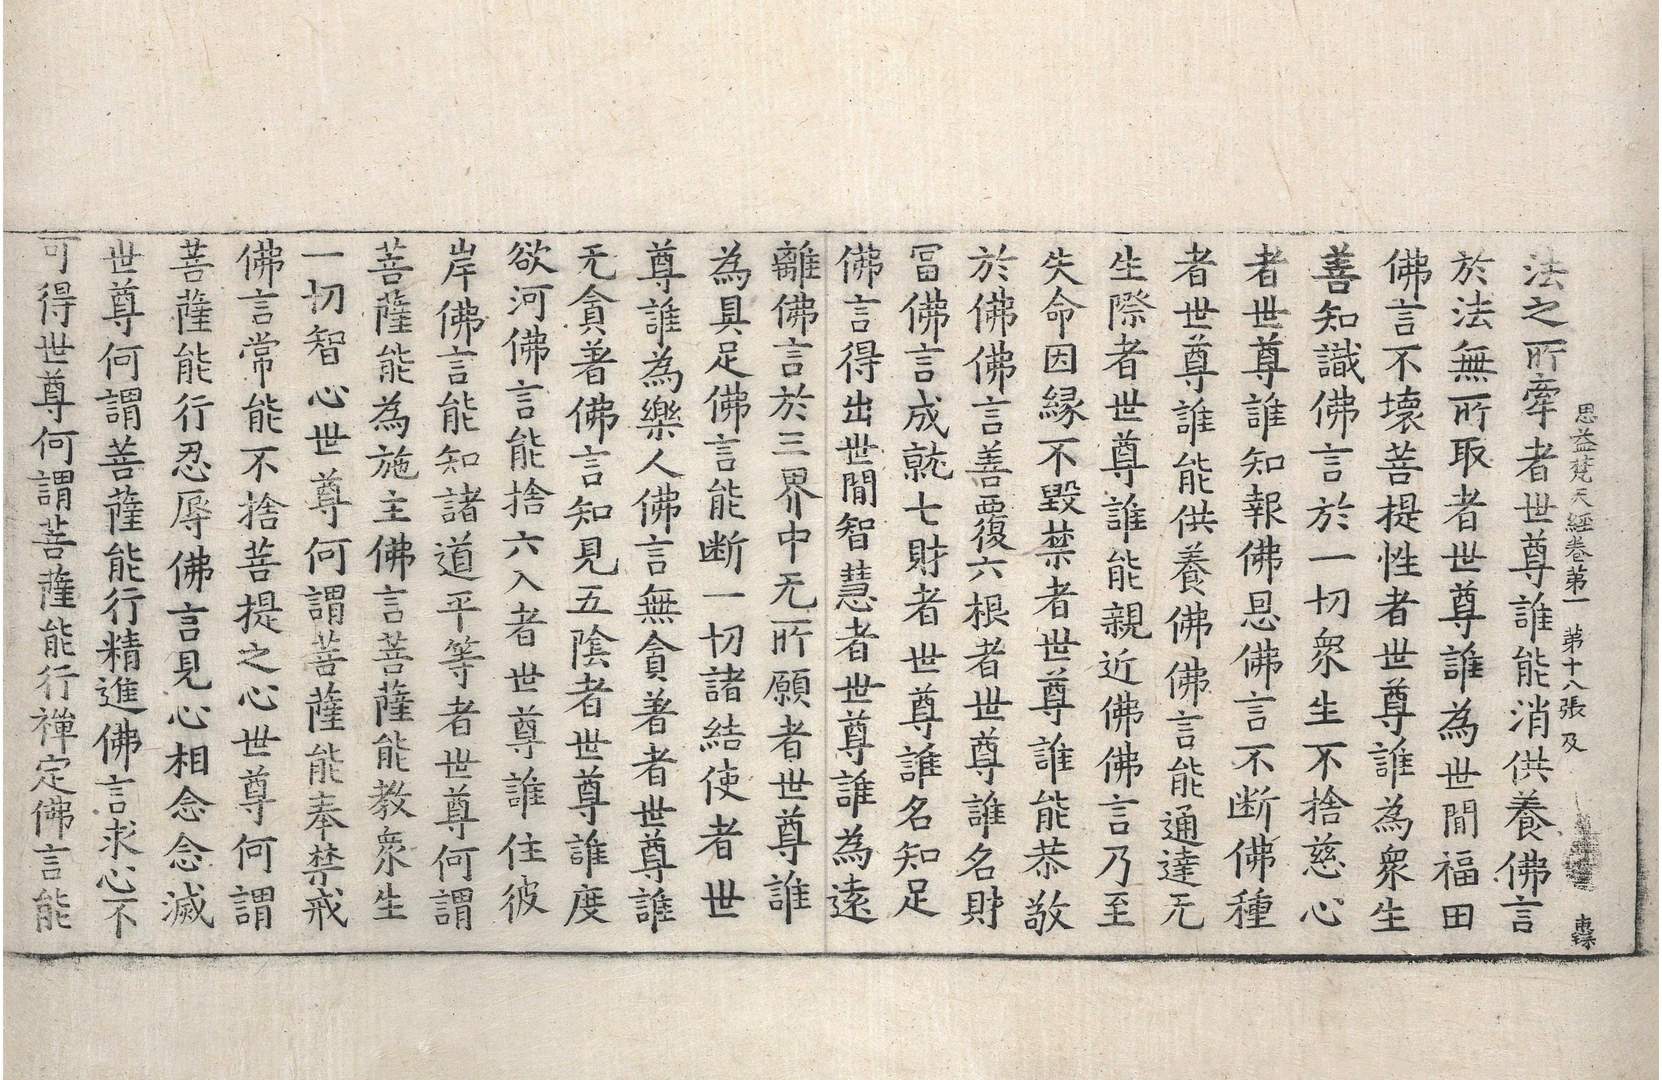 思益梵天經卷第一 第十八張 及
法之所牽者世尊誰能消供養佛言
於法無所取者世尊誰為世間福田
佛言不壞菩提性者世尊誰為衆生
善知識佛言於一切衆生不捨慈心
者世尊誰知報佛恩佛言不断佛種
者世尊誰能供養佛佛言能通達无
生際者世尊誰能親近佛佛言乃至
失命因縁不毀禁者世尊誰能恭敬
於佛佛言善覆六根者世尊誰名財
冨佛言成就七財者世尊誰名知足
佛言得出世間智慧者世尊誰為遠
離佛言於三界中无所願者世尊誰
為具足佛言能断一切諸結使者世
尊誰為樂人佛言無貪著者世尊誰
无貪著佛言知見五陰者世尊誰度
欲河佛言能捨六入者世尊誰住彼
岸佛言能知諸道平等者世尊何謂
菩薩能為施主佛言菩薩能教衆生
一切智心世尊何謂菩薩能奉禁戒
佛言常能不捨菩提之心世尊何謂
菩薩能行忍辱佛言見心相念念滅
世尊何謂菩薩能行精進佛言求心不
可得世尊何謂菩薩能行禪定佛言能